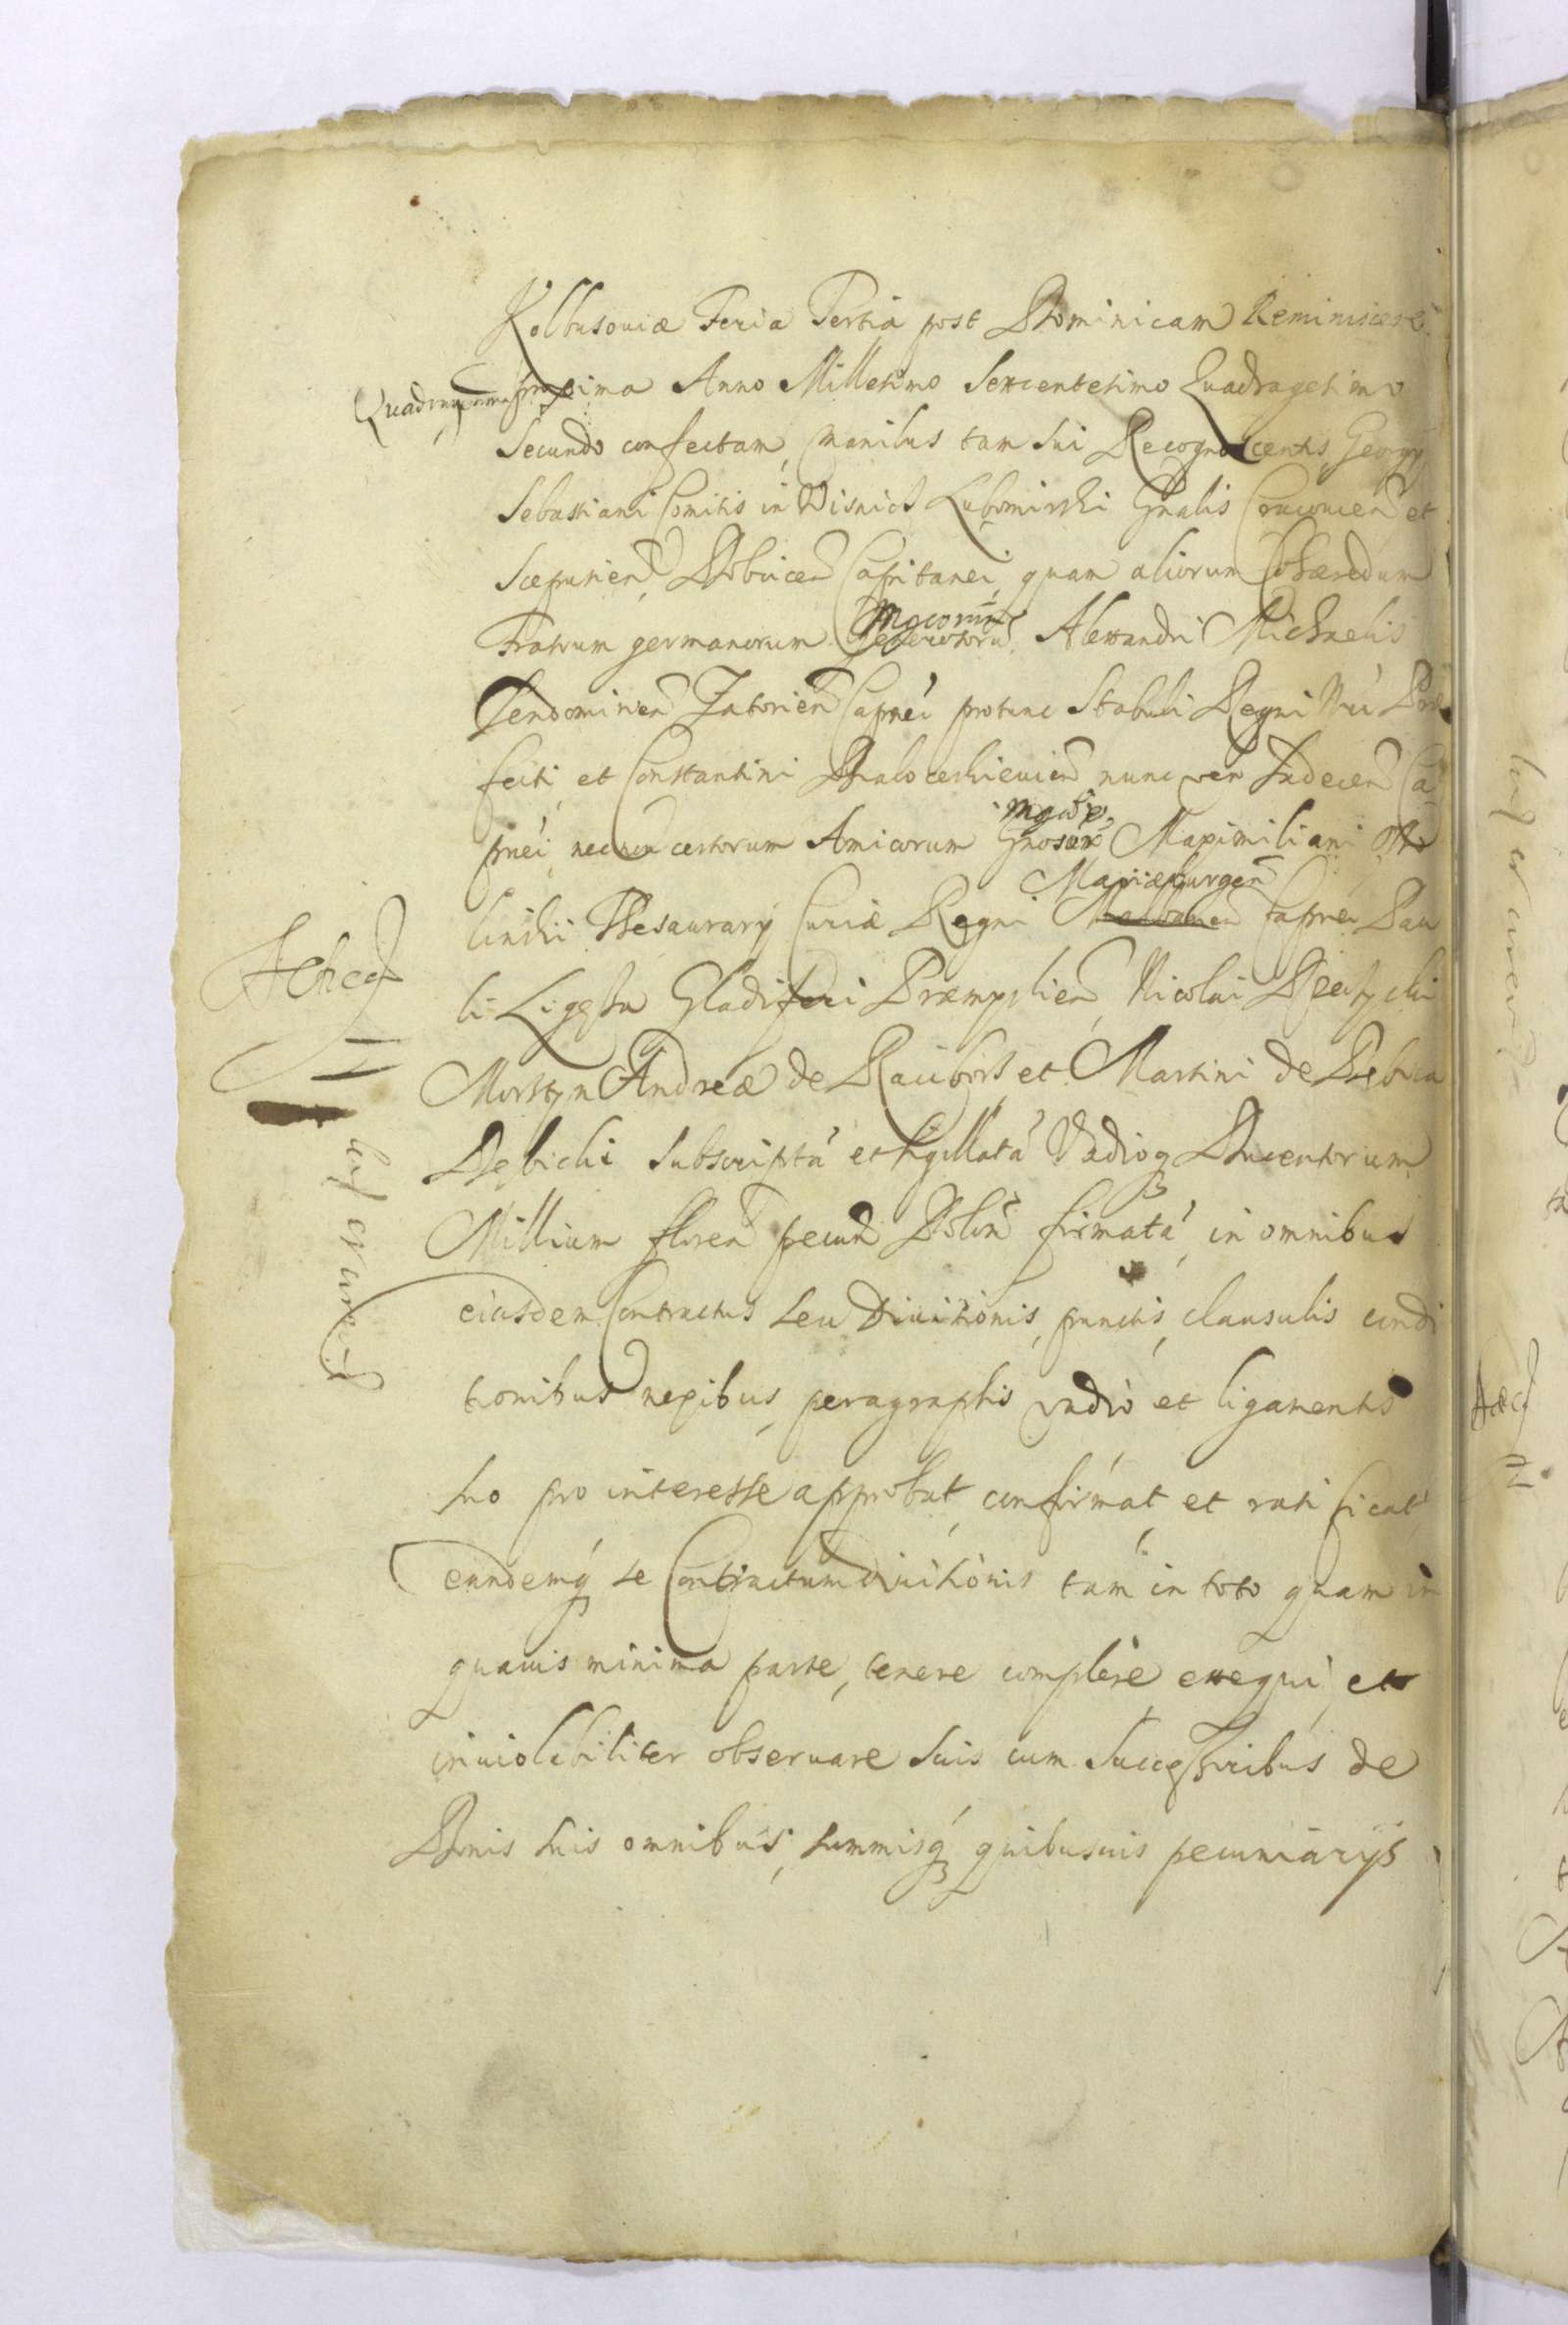 Kolbusouiæ Feria Tertia post Dominicam Reminiscere
Quadragesimæ proxima Anno Millesimo Sexcentesimo Quadragesimo
Secundo confectam, manibus tam sui Recognoscentis Georgij
Sebastiani Comitis in Visnicz Lubomirski Gnalis Cracouien et
Scepusien, Dobcicen Capitanei, quam aliorum Cohæredum
Mgcorum
Fratrum germanorum Generosorum Alexandri Michaelis
Sendomirien Zatorien Capnei protunc Stabuli Regni Præ
fecti et Constantini Bialocerkieuien nunc vero Sadecen Ca
Mgcor
pnei, necnon certorum Amicorum Gnosor Maximiliani
Mariæburgen
linski Thesaurarij Curiæ Regni Capnei Pau
Adhed
li Ligęza Gladiferi Præmyslien, Nicolai
Morstyn Andreæ de Raciborsk et Martini de Dębica
Dębicki subscriptã et sigillatã Vadioq Ducentorum
Millium floren pecun Polon firmatã, in omnibus
eiusdem Contractus seu Diuisionis, punctis, clausulis condi
tionibus nexibus, peragraphis vadio et ligamentis
suo pro interesse approbat, confirmat, et ratificat,
eundemq se Contractum diuisionis tam in toto quam in
quauis minima parte, tenere complere exequi, et
inuiolabiliter obseruare suis cum Successoribus de
Bonis suis omnibus, summisq quibusuis pecuniarijs